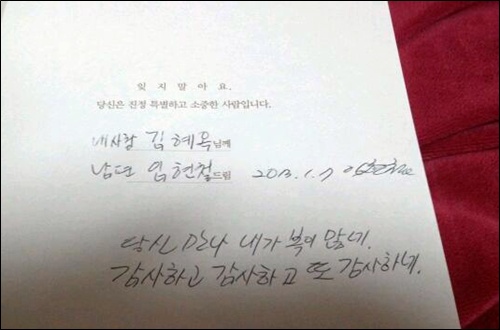 잊지말아요.
당신은 진정 특별하고 소중한 사람입니다.
내사랑 김혜옥님께
남편 임현철드림 2013.1.7
당신 만나 내가 복이 많네.
감사하고 감사하고 또 감사하네.